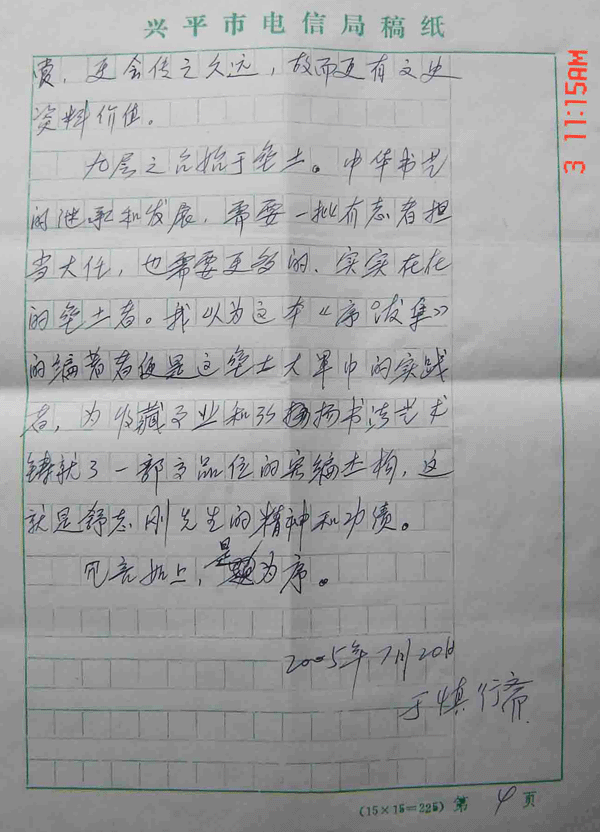 兴平市电信局稿纸
3 11:15AM
赏，更会传之久远，故而更有文史
资料价值。
九层之台始于垒土。中华书艺
的继承和发展，需要一批有志者担
当大任，也需要更多的、实实在在
的垒土者。我以为这本《序跋集》
的编著者便是这垒土大军中的实践
者，为收藏事业和弘扬书法艺术
铸就了一部高品位的宏编杰构，这
就是舒志刚先生的精神和功绩。
冗言如上，是为序。
2005年7月20日
于慎行斋
(15×15=225) 第 4 页